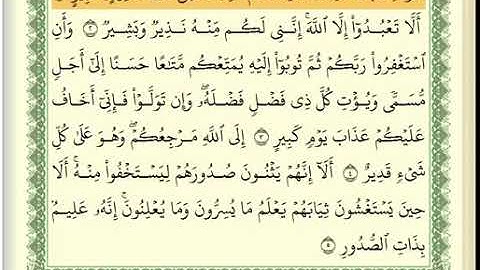 أَلَّا تَعْبُدُوٓا۟ إِلَّا ٱللَّهَ ۚ إِنَّنِى لَكُم مِّنْهُ نَذِيرٌ وَبَشِيرٌ ﴿٢﴾ وَأَنِ
ٱسْتَغْفِرُوا۟ رَبَّكُمْ ثُمَّ تُوبُوٓا۟ إِلَيْهِ يُمَتِّعْكُم مَّتَـٰعًا حَسَنًا إِلَىٰٓ أَجَلٍ
مُّسَمًّى وَيُؤْتِ كُلَّ ذِى فَضْلٍ فَضْلَهُۥ ۖ وَإِن تَوَلَّوْا۟ فَإِنِّىٓ أَخَافُ
عَلَيْكُمْ عَذَابَ يَوْمٍ كَبِيرٍ ﴿٣﴾ إِلَى ٱللَّهِ مَرْجِعُكُمْ ۖ وَهُوَ عَلَىٰ كُلِّ
شَىْءٍ قَدِيرٌ ﴿٤﴾ أَلَآ إِنَّهُمْ يَثْنُونَ صُدُورَهُمْ لِيَسْتَخْفُوا۟ مِنْهُ ۚ أَلَا
حِينَ يَسْتَغْشُونَ ثِيَابَهُمْ يَعْلَمُ مَا يُسِرُّونَ وَمَا يُعْلِنُونَ ۚ إِنَّهُۥ عَلِيمٌۢ
بِذَاتِ ٱلصُّدُورِ ﴿٥﴾